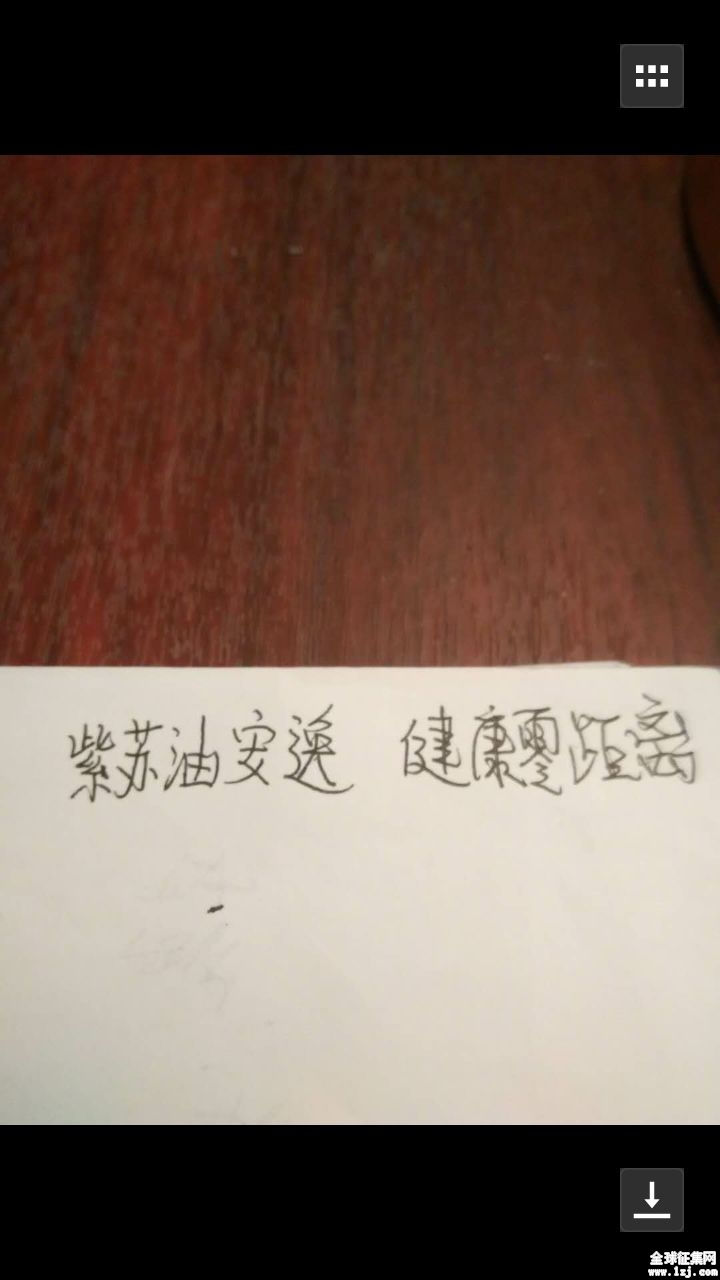 紫苏油安逸 健康零距离
全球征集网
www.1zj.com